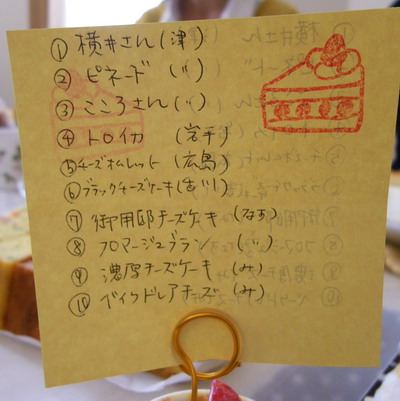 ① 横井さん(津)
② ピネード (〃)
③ こころさん(〃)
④ トロイカ (岩手)
⑤ チーズオムレット(広島)
⑥ ブラックチーズケーキ(
⑦ 御用邸チーズケーキ (なす)
⑧ フロマージュブラン (〃)
⑨ 濃厚チーズケーキ (み)
⑩ ベイクドレアチーズ (み)